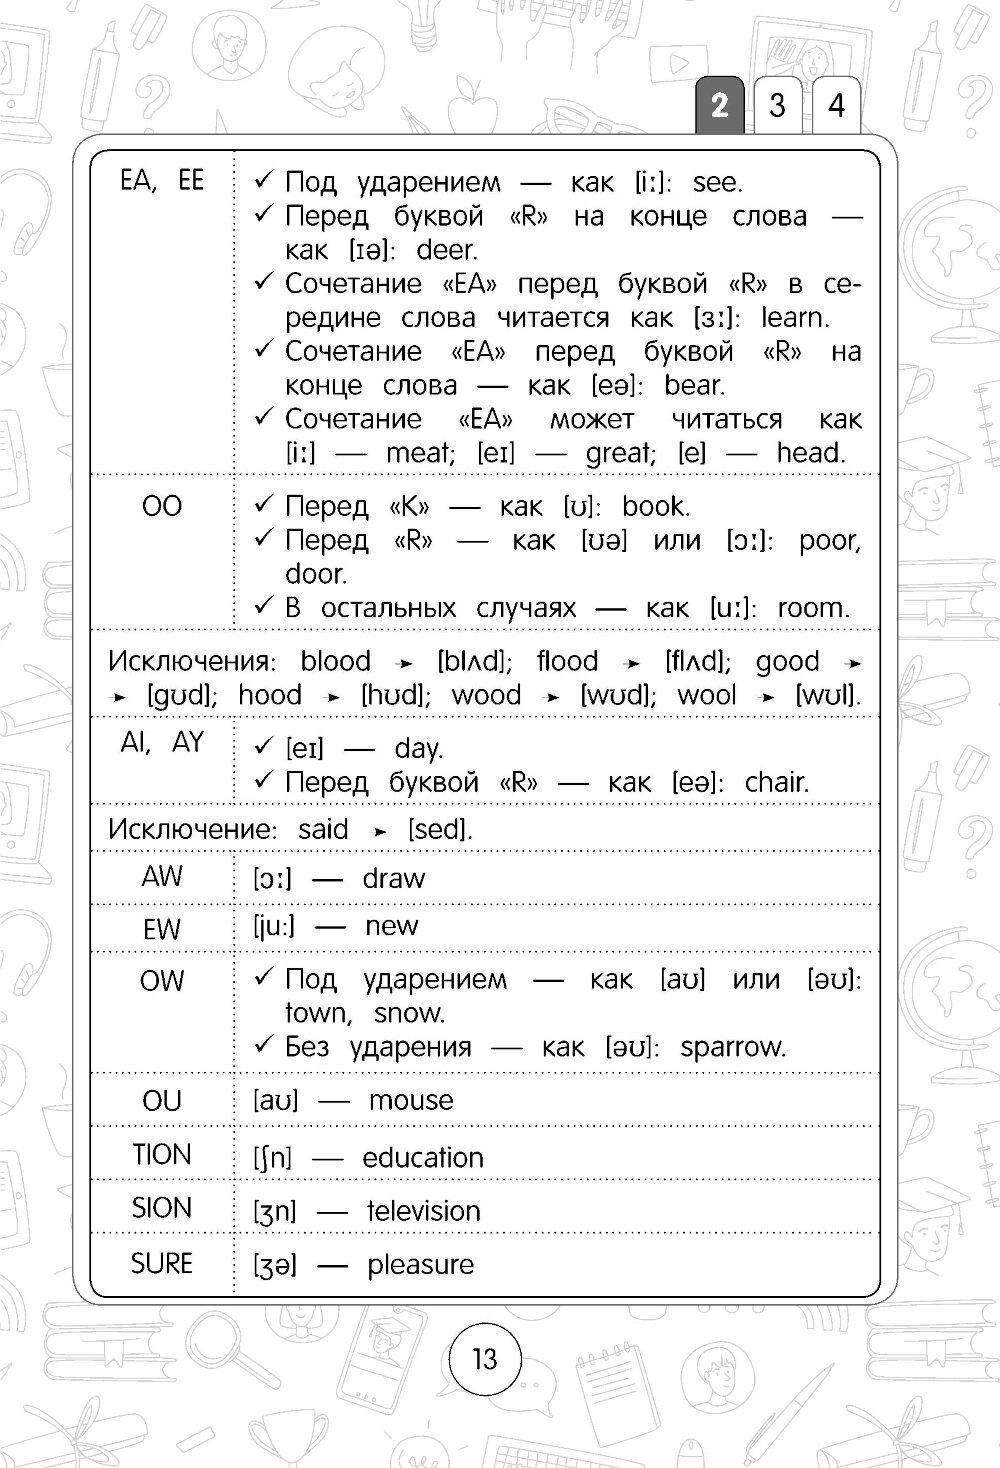 2 3 4
EA, EE
✓ Под ударением — как [iː]: see.
✓ Перед буквой «R» на конце слова —
как [ɪə]: deer.
✓ Сочетание «EA» перед буквой «R» в се-
редине слова читается как [ɜː]: learn.
✓ Сочетание «EA» перед буквой «R» на
конце слова — как [eə]: bear.
✓ Сочетание «EA» может читаться как
[iː] — meat; [eɪ] — great; [e] — head.
OO
✓ Перед «K» — как [ʊ]: book.
✓ Перед «R» — как [ʊə] или [ɔː]: poor,
door.
✓ В остальных случаях — как [uː]: room.
Исключения: blood ➤ [blʌd]; flood ➤ [flʌd]; good ➤
➤ [gʊd]; hood ➤ [hʊd]; wood ➤ [wʊd]; wool ➤ [wʊl].
AI, AY
✓ [eɪ] — day.
✓ Перед буквой «R» — как [eə]: chair.
Исключение: said ➤ [sed].
AW [ɔː] — draw
EW [ju:] — new
OW
✓ Под ударением — как [aʊ] или [əʊ]:
town, snow.
✓ Без ударения — как [əʊ]: sparrow.
OU [aʊ] — mouse
TION [ʃn] — education
SION [ʒn] — television
SURE [ʒə] — pleasure
13